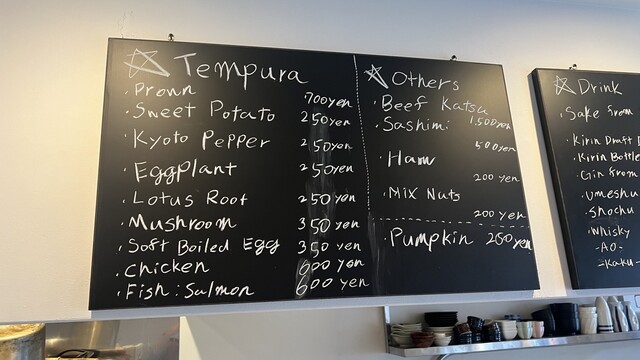 ☆ Tempura
· Prown 700yen
· Sweet Potato 250yen
· Kyoto Pepper 250yen
· Eggplant 250yen
· Lotus Root 250yen
· Mushroom 350 yen
· Soft Boiled Egg 350 yen
· Chicken 600 yen
· Fish: Salmon 600 yen
☆ Others
· Beef Katsu 1,500yen
· Sashimi 500yen
· Ham 200 yen
· Mix Nuts 200 yen
· Pumpkin 250yen
☆ Drink
· Sake from
· Kirin Draft
· Kirin Bottle
· Gin from
· Umeshu
· Shochu
· Whisky
-AO-
-Kaku-